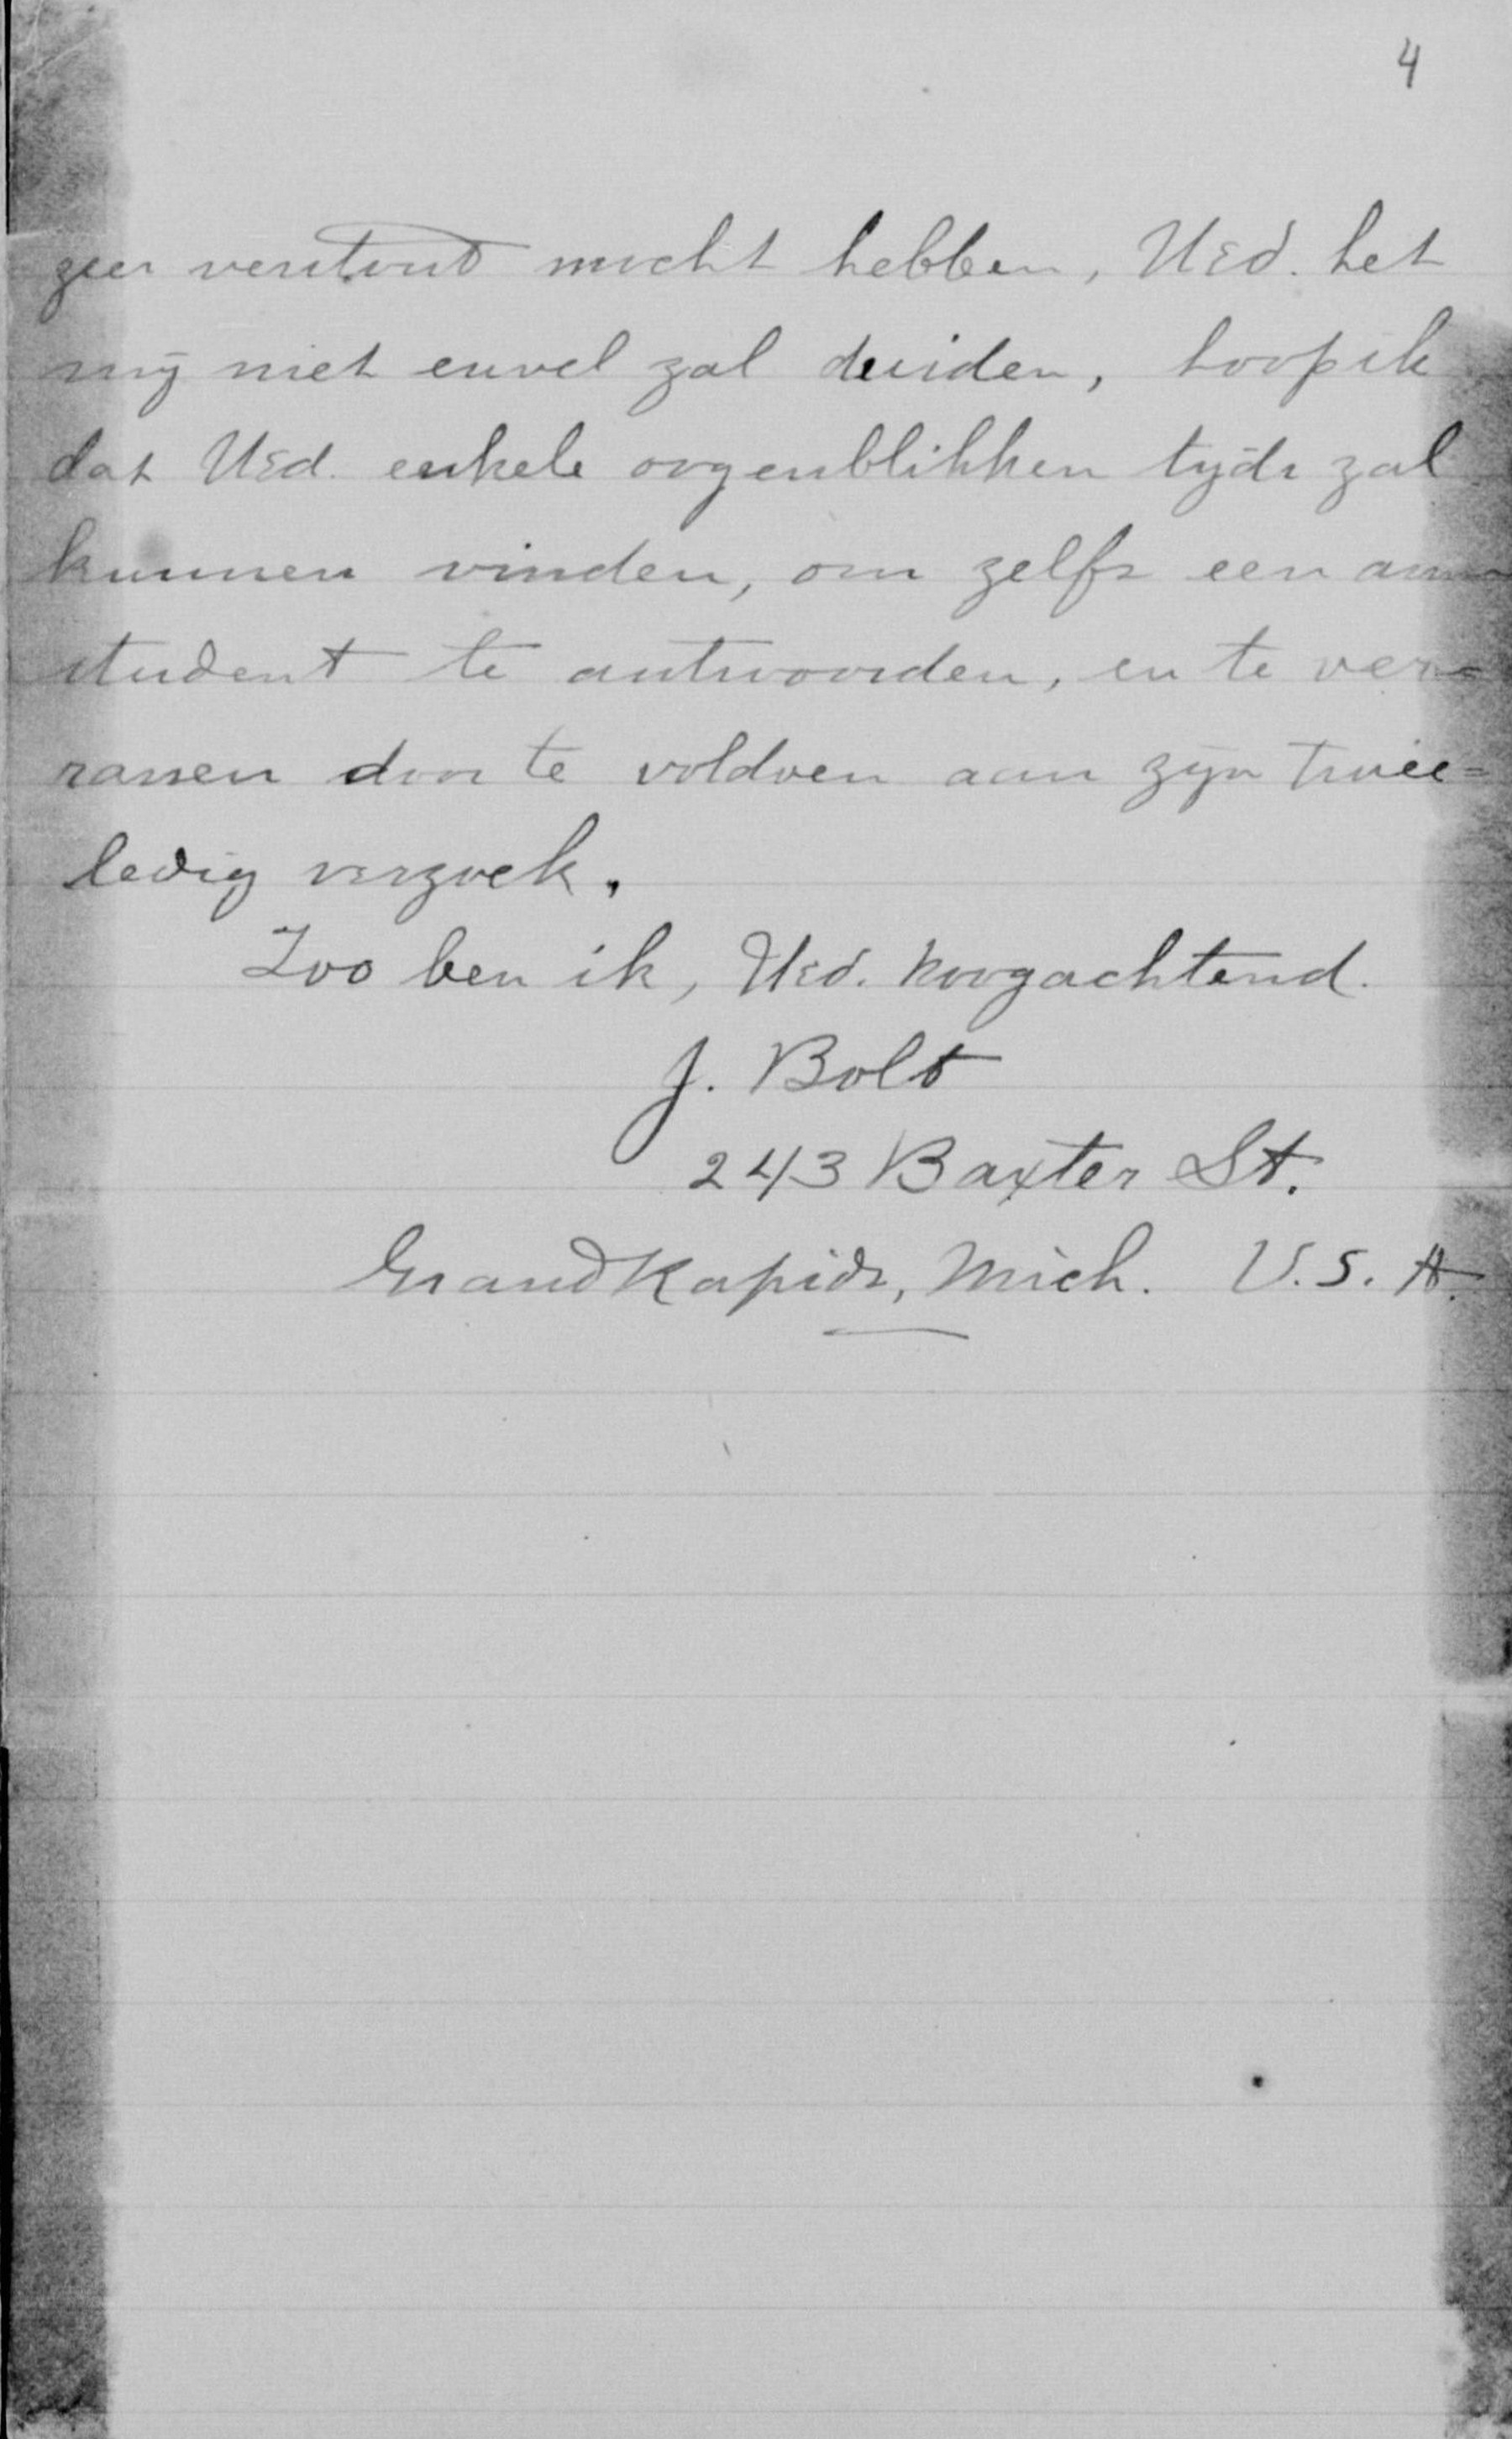 4
zeer verstout mocht hebben, UEd. het
mij niet euvel zal duiden, hoop ik
dat UEd. enkele oogenblikken tijds zal
kunnen vinden, om zelfs een arm
student te antwoorden, en te ver=
rassen door te voldoen aan zijn twee=
ledig verzoek.
Zoo ben ik, UEd. hoogachtend.
J. Bolt
243 Baxter St.
Grand Rapids, Mich. U.S.A.